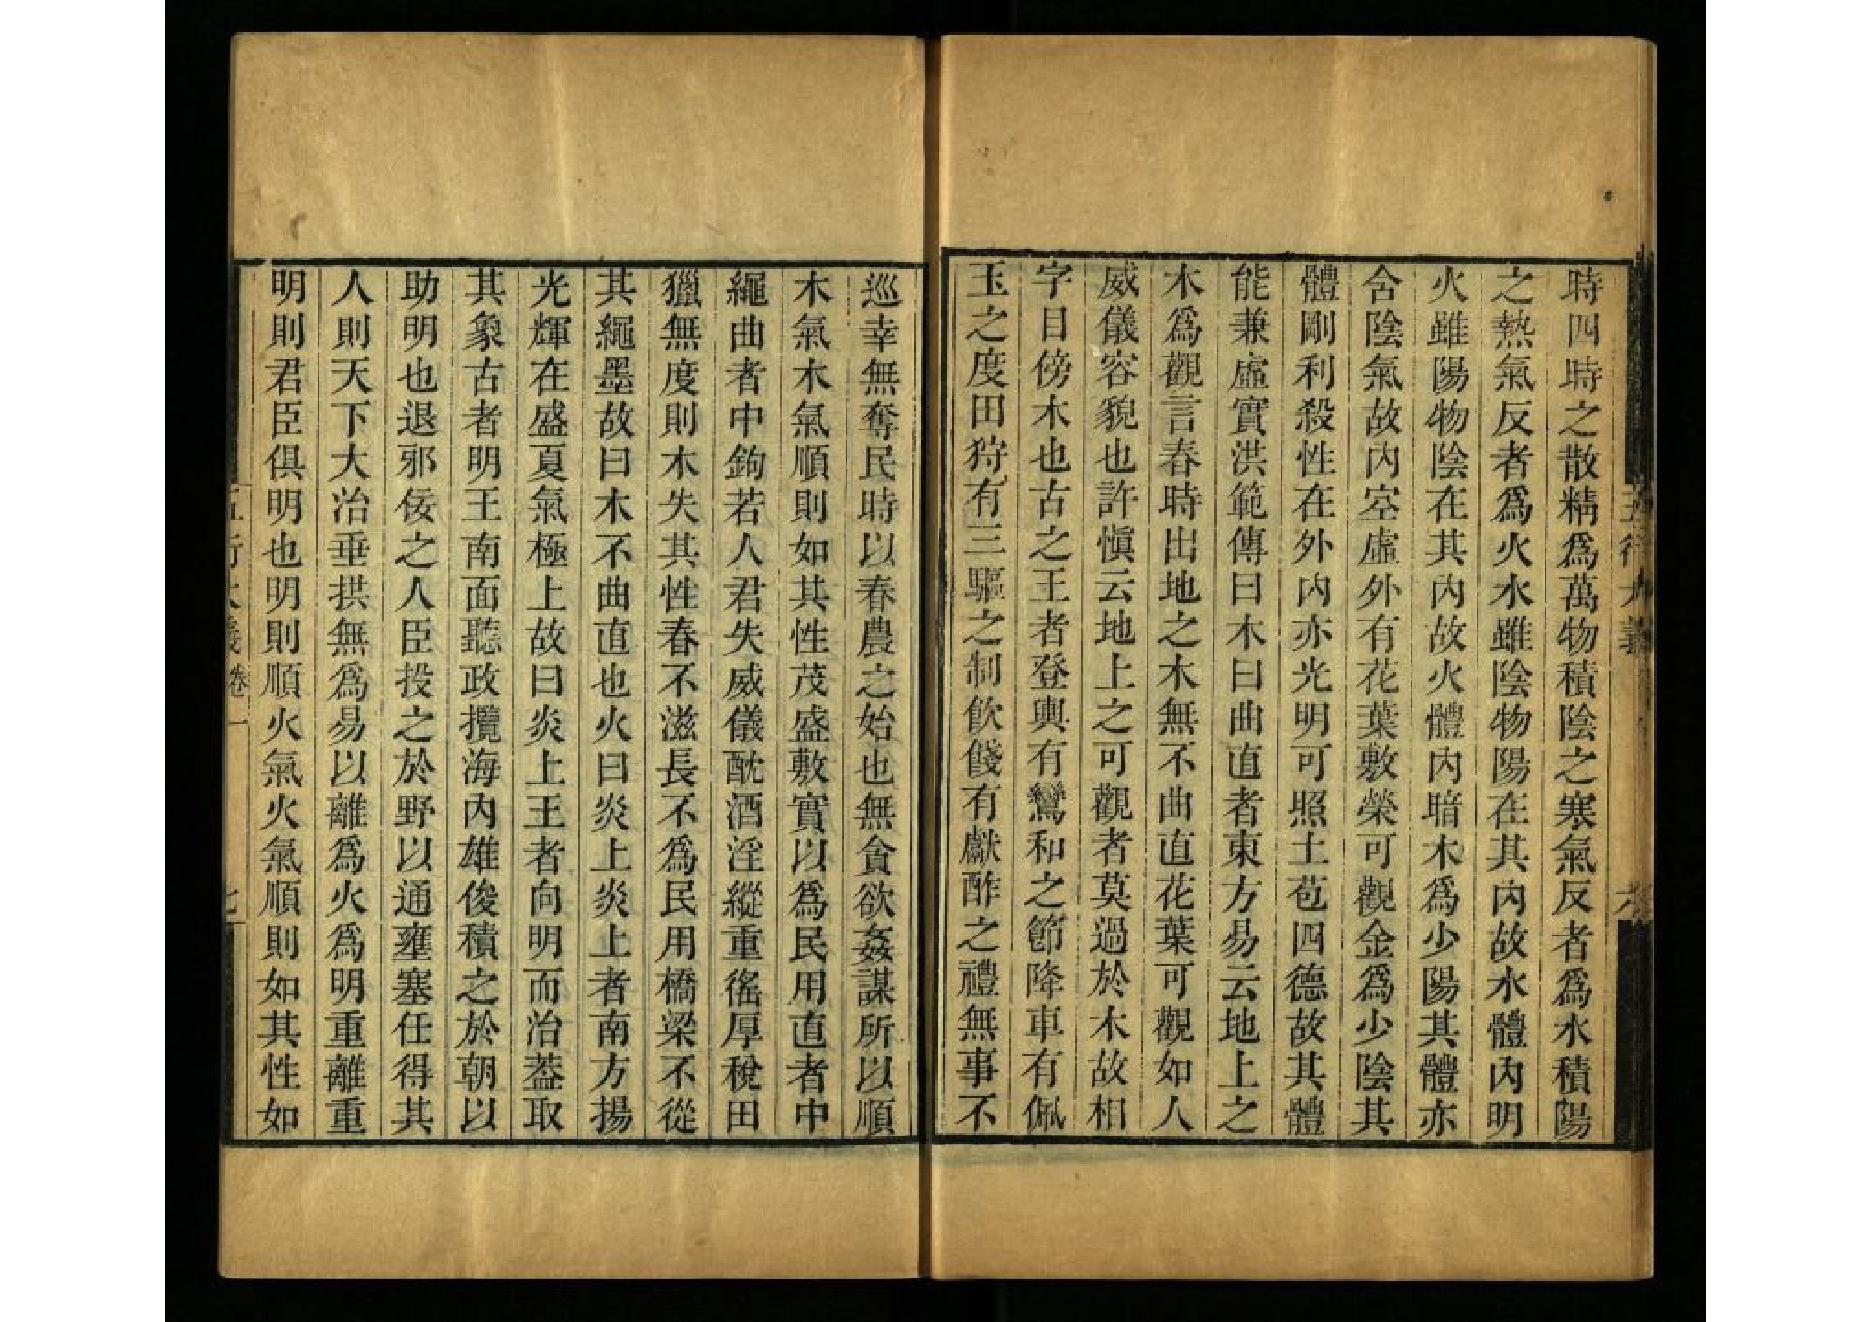 時四時之散精爲萬物積陰之寒氣反者爲水積陽
之熱氣反者爲火水雖陰物陽在其內故水體內明
火雖陽物陰在其內故火體內暗木爲少陽其體亦
含陰氣故內空虛外有花葉敷榮可觀金爲少陰其
體剛利殺性在外內亦光明可照土苞四德故其體
能兼虛實洪範傳曰木曰曲直者東方易云地上之
木爲觀言春時出地之木無不曲直花葉可觀如人
威儀容貌也許慎云地上之可觀者莫過於木故相
字目傍木也古之王者登輿有鸞和之節降車有佩
玉之度田狩有三驅之制飮餞有獻酢之禮無事不
五行大義
六
巡幸無奪民時以春農之始也無貪欲姦謀所以順
木氣木氣順則如其性茂盛敷實以爲民用直者中
繩曲者中鉤若人君失威儀酖酒淫縱重徭厚稅田
獵無度則木失其性春不滋長不爲民用橋梁不從
其繩墨故曰木不曲直也火曰炎上炎上者南方揚
光輝在盛夏氣極上故曰炎上王者向明而治葢取
其象古者明王南面聽政攬海內雄俊積之於朝以
助明也退邪佞之人臣投之於野以通壅塞任得其
人則天下大治垂拱無爲易以離爲火爲明重離重
明則君臣俱明也明則順火氣火氣順則如其性如
五行大義卷一
七